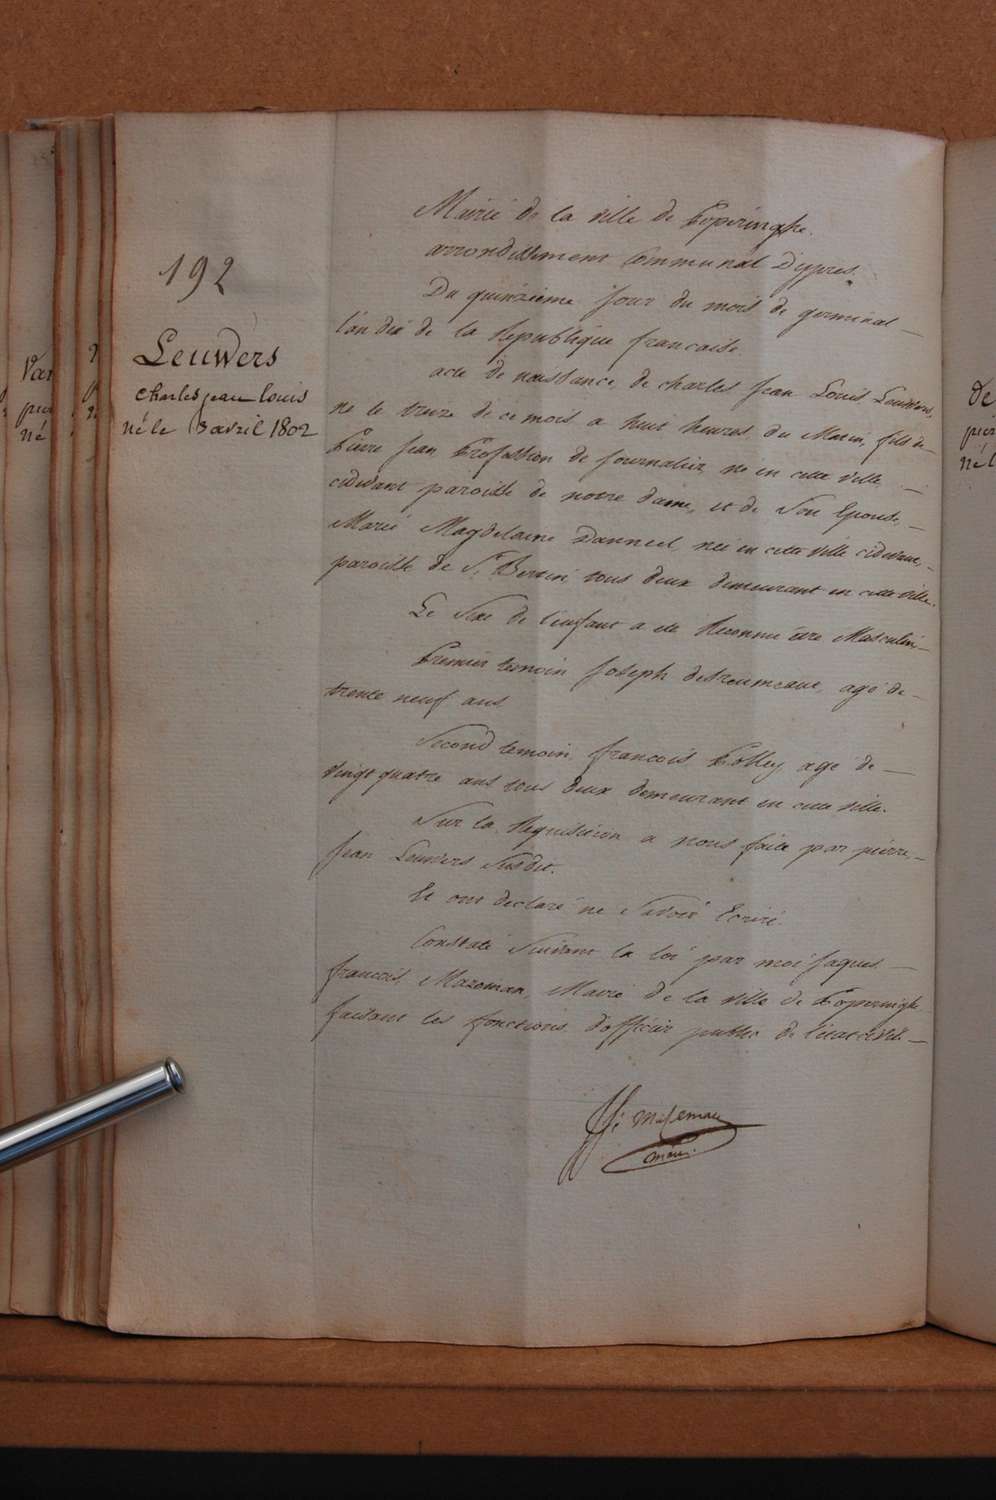 192
Leuwers
charles jean louis
né le 3 avril 1802
Mairie de la ville de Poperinghe.
arrondissement Communal D'ypres.
Du quinzieme jour du mois de germinal
l'an dix de la Republique francaise.
acte de naissance de charles Jean Louis Leuwers,
né le treize de ce mois a huit heures du Matin, fils de
Pierre Jean Profession de Journalier, né en cette ville
cidevant paroisse de notre dame, et de Son Epouse
Marie Magdelaine Danneel, née en cette ville cidevant,
paroisse de St. Bertin, tous deux demeurant en cette ville.
Le Sexe de l'enfant a eté Reconnu être Masculin
Premier temoin Joseph agé de
trente neuf ans
Second temoin francois Polley agé de
vingt quatre ans tous deux demeurant en cette ville.
Sur la Requisition a nous faite par pierre
Jean Leuwers Susdit.
Et ont declaré ne Savoir Ecrire.
Constaté Suivant la loi par moi Jaques
francois Mazeman, Maire de la ville de Poperinghe
faisant les fonctions d'officier public de l'état civil
Mazeman
maire.
Van
pier
né
de
pier
né l